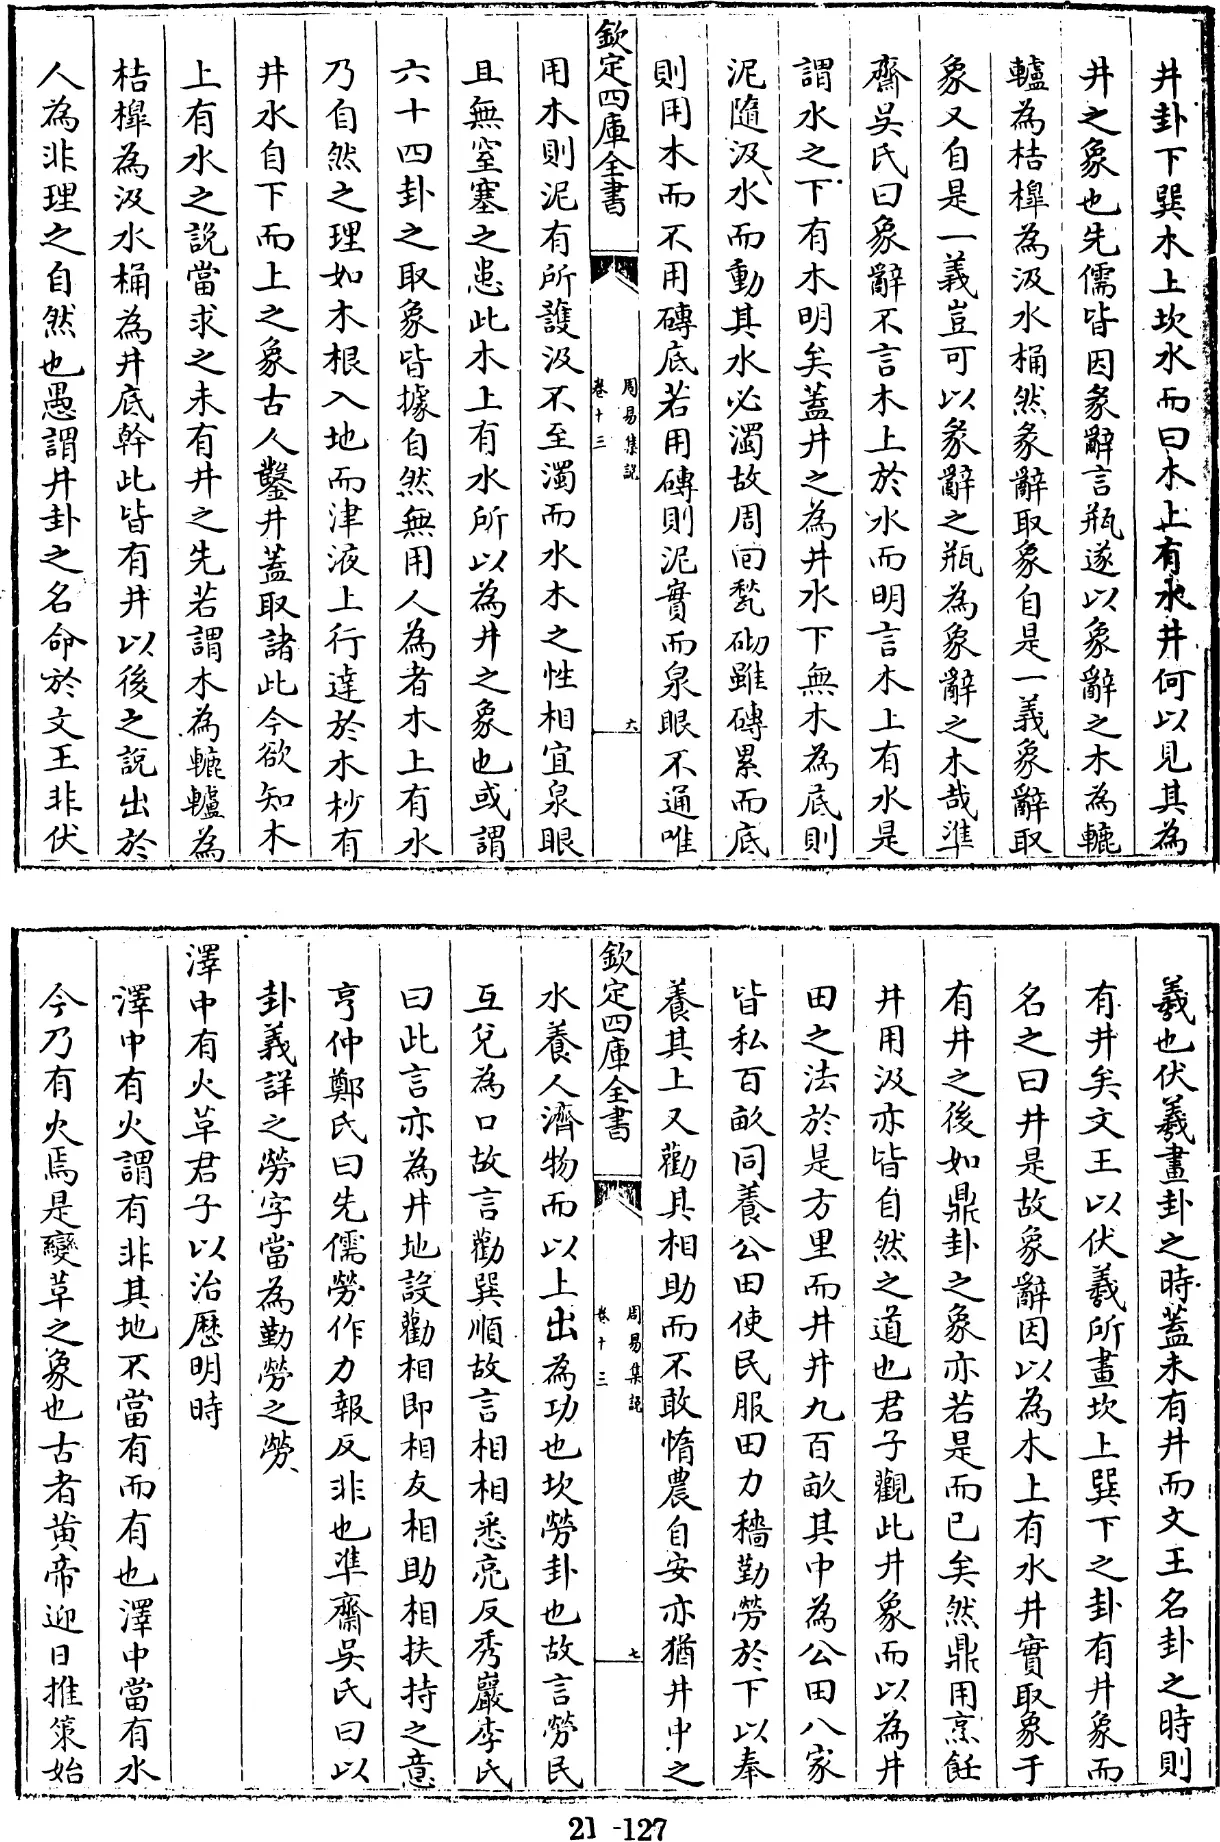 井卦下巽木上坎水而曰木上有水井何以見其為
井之象也先儒皆因彖辭言瓶遂以象辭之木為轆
轤為桔橰為汲水桶然彖辭取象自是一義象辭取
象又自是一義豈可以彖辭之瓶為象辭之木哉準
齋吳氏曰象辭不言木上於水而明言木上有水是
謂水之下有木明矣蓋井之為井水下無木為底則
泥隨汲水而動其水必濁故周回甃砌雖磚累而底
則用木而不用磚底若用磚則泥實而泉眼不通唯
欽定四庫全書
周易集說
卷十三
六
用木則泥有所護汲不至濁而水木之性相宜泉眼
且無窒塞之患此木上有水所以為井之象也或謂
六十四卦之取象皆據自然無用人為者木上有水
乃自然之理如木根入地而津液上行達於木杪有
井水自下而上之象古人鑿井蓋取諸此今欲知木
上有水之說當求之未有井之先若謂木為轆轤為
桔橰為汲水桶為井底幹此皆有井以後之說出於
人為非理之自然也愚謂井卦之名命於文王非伏
羲也伏羲畫卦之時蓋未有井而文王名卦之時則
有井矣文王以伏羲所畫坎上巽下之卦有井象而
名之曰井是故象辭因以為木上有水井實取象于
有井之後如鼎卦之象亦若是而已矣然鼎用烹飪
井用汲亦皆自然之道也君子觀此井象而以為井
田之法於是方里而井井九百畝其中為公田八家
皆私百畝同養公田使民服田力穡勤勞於下以奉
養其上又勸具相助而不敢惰農自安亦猶井中之
欽定四庫全書
周易集說
卷十三
七
水養人濟物而以上出為功也坎勞卦也故言勞民
互兌為口故言勸巽順故言相相悉亮反秀巖李氏
曰此言亦為井地設勸相即相友相助相扶持之意
亨仲鄭氏曰先儒勞作力報反非也準齋吳氏曰以
卦義詳之勞字當為勤勞之勞
澤中有火革君子以治歷明時
澤中有火謂有非其地不當有而有也澤中當有水
今乃有火焉是變革之象也古者黃帝迎日推策始
21-127